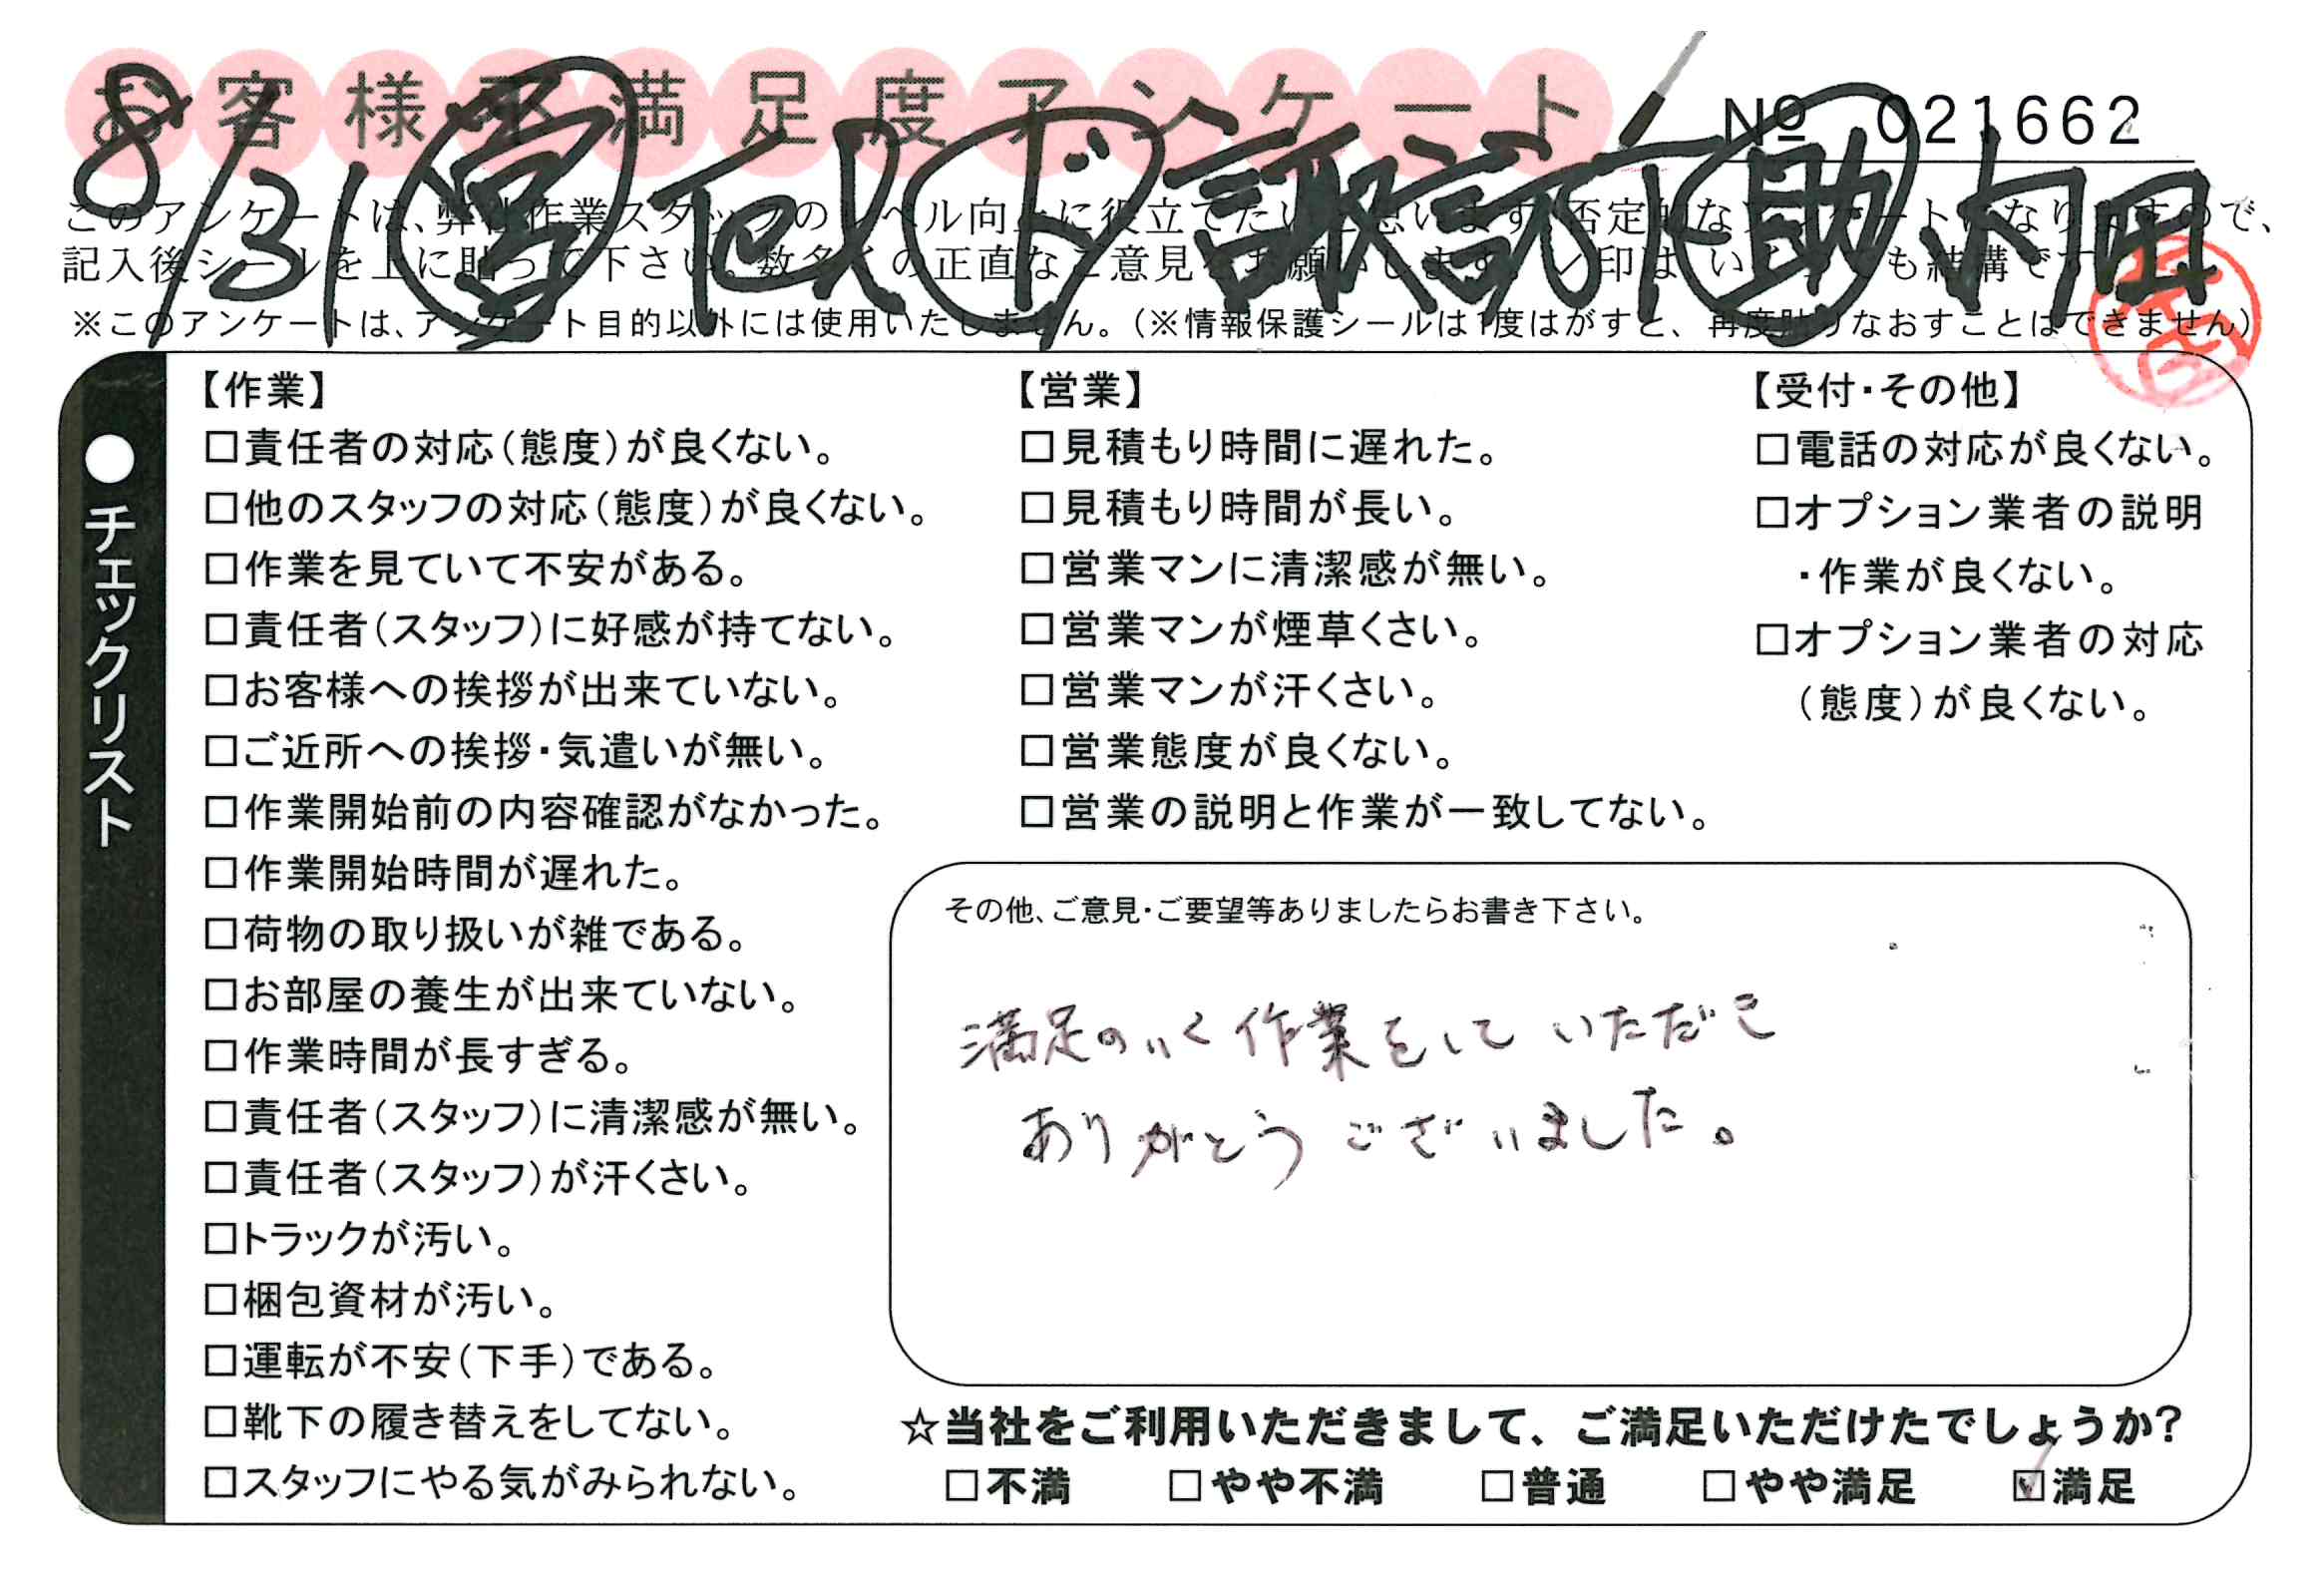 お客様不満足度アンケート
№ 021662
8/31 ㊂営 Tel ド 諏訪下 助 内田
このアンケートは、弊社作業スタッフのレベル向上に役立てたいと思います。否定的なアンケートになりますので、
記入後シールを上に貼って下さい。数多くの正直なご意見をお願いします。
※このアンケートは、アンケート目的以外には使用いたしません。（※情報保護シールは1度はがすと、再度貼りなおすことはできません）
●チェックリスト
【作業】
□責任者の対応（態度）が良くない。
□他のスタッフの対応（態度）が良くない。
□作業を見ていて不安がある。
□責任者（スタッフ）に好感が持てない。
□お客様への挨拶が出来ていない。
□ご近所への挨拶・気遣いが無い。
□作業開始前の内容確認がなかった。
□作業開始時間が遅れた。
□荷物の取り扱いが雑である。
□お部屋の養生が出来ていない。
□作業時間が長すぎる。
□責任者（スタッフ）に清潔感が無い。
□責任者（スタッフ）が汗くさい。
□トラックが汚い。
□梱包資材が汚い。
□運転が不安（下手）である。
□靴下の履き替えをしてない。
□スタッフにやる気がみられない。
【営業】
□見積もり時間に遅れた。
□見積もり時間が長い。
□営業マンに清潔感が無い。
□営業マンが煙草くさい。
□営業マンが汗くさい。
□営業態度が良くない。
□営業の説明と作業が一致してない。
【受付・その他】
□電話の対応が良くない。
□オプション業者の説明
・作業が良くない。
□オプション業者の対応
（態度）が良くない。
その他、ご意見・ご要望等ありましたらお書き下さい。
満足のいく作業をしていただき
ありがとうございました。
☆当社をご利用いただきまして、ご満足いただけたでしょうか？
□不満 □やや不満 □普通 □やや満足 ☑満足